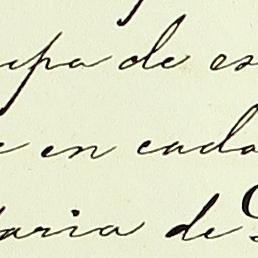 upa de es
e en cada
taria de